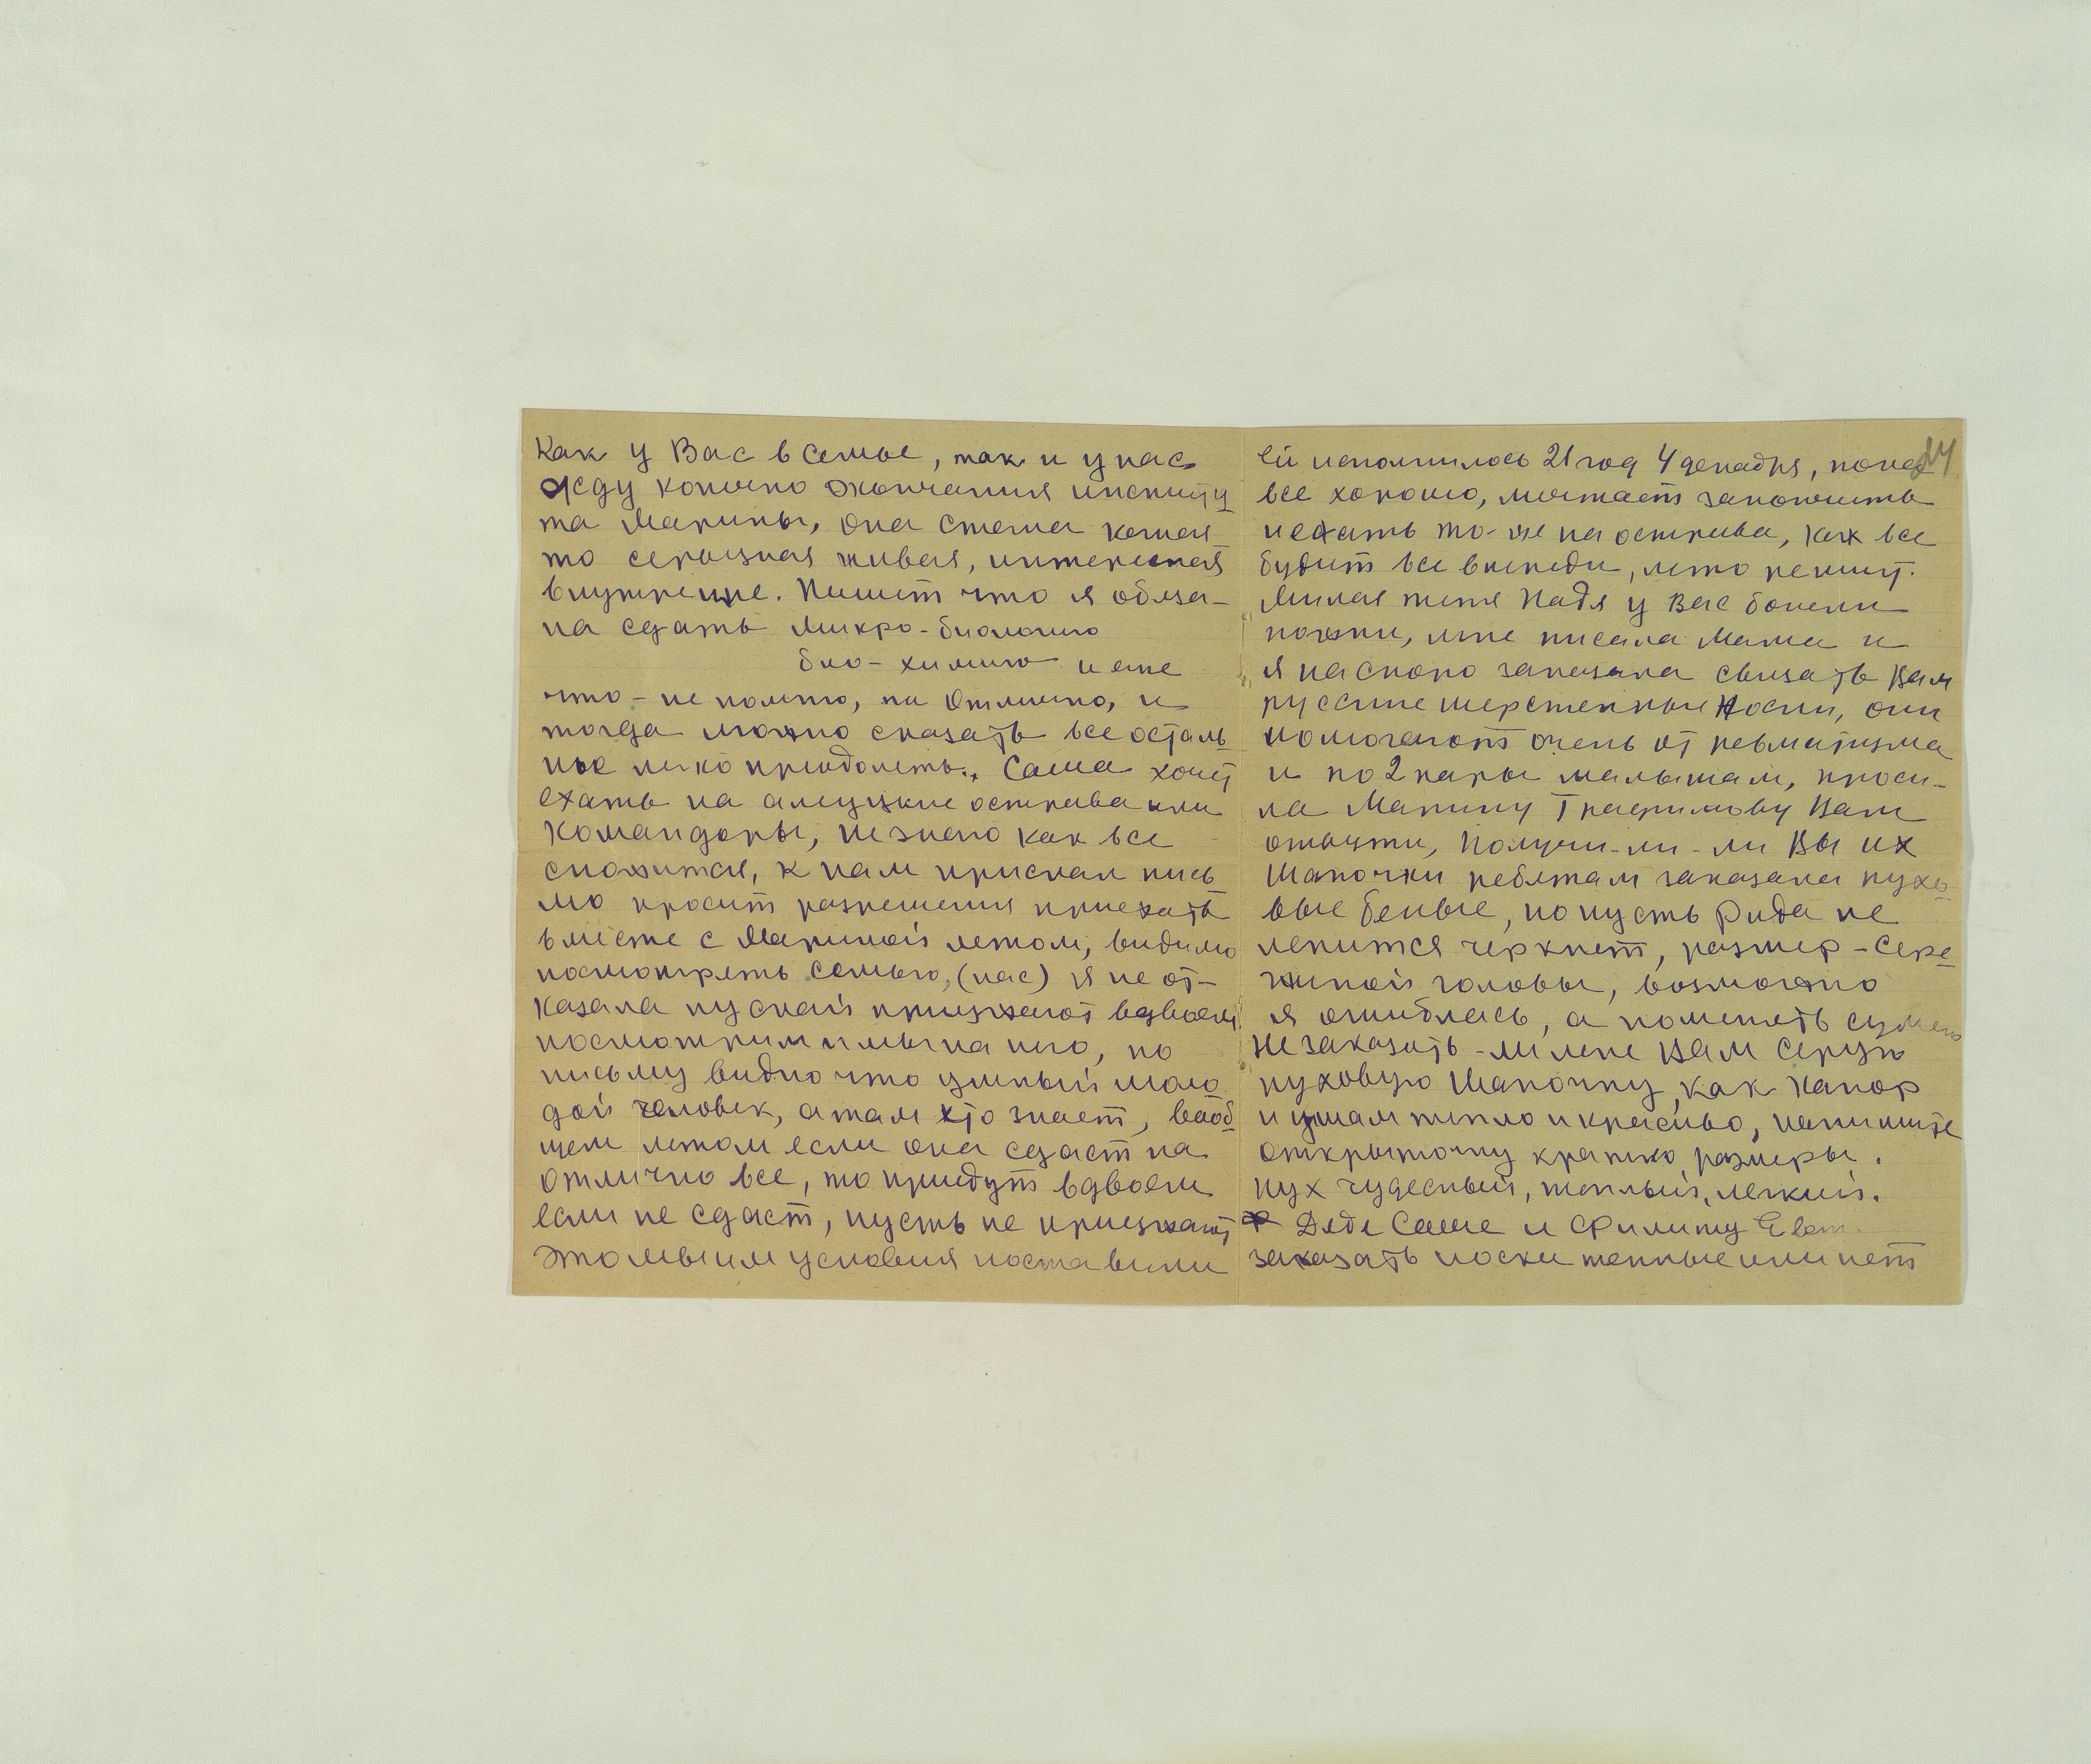 Как у Вас в семье, так и у нас
Жду конечно окончания институ
та Марины, она стала какая
то серьозная живая, интересная
внутренне. Пишет что я обяза-
на сдать микро-биологию
био-химию и еще
что-не помню, на отлично, и
тогда можно сказать все осталь
ное легко приодолеть.. Саша хочет
ехать на алеуцкие острова или
Командоры, не знаю как все
сложится, к нам прислал пись
мо просит разрешения приехать
вместе с Мариной летом, видимо
посмотреть семью, (нас) я не от-
казала пускай приезжают вдвоем
посмотрим и мы на него, по
письму видно что умный моло
дой человек, а там кто знает, вооб
щем летом если она сдаст на
отлично все, то приедут вдвоем
если не сдаст, пусть не приезжают
это мы им условия поставили
24
ей исполнилось 21 год 4 декабря, пока
все хорошо, мечтает закончить
и ехать то-же на острова, как все
будит все впереди, лето решит.
Милая тетя Надя у Вас болели
ножки, мне писала Мама и
я наскоро заказала связать Вам
русские шерстенные носки, они
помогают очень от ревматизма
и по 2 пары малышам, проси-
ла Марину Трафимову Вам
отвезти, Получи-ли-ли Вы их
Шапочки ребятам заказала пухо
вые белые, но пусть Рида не
ленится черкнет, размер-Сере
жиной головы, возможно
я ошиблась, а поменять сумею
Не заказать-ли мне Вам Серую
пуховую Шапочку, как капор
и ушам тепло и красиво, напишите
открыточку кратко, размеры.
пух чудесный, теплый, легкий.
Дяде Саше и Филипу Евт.
заказать носки теплые или нет